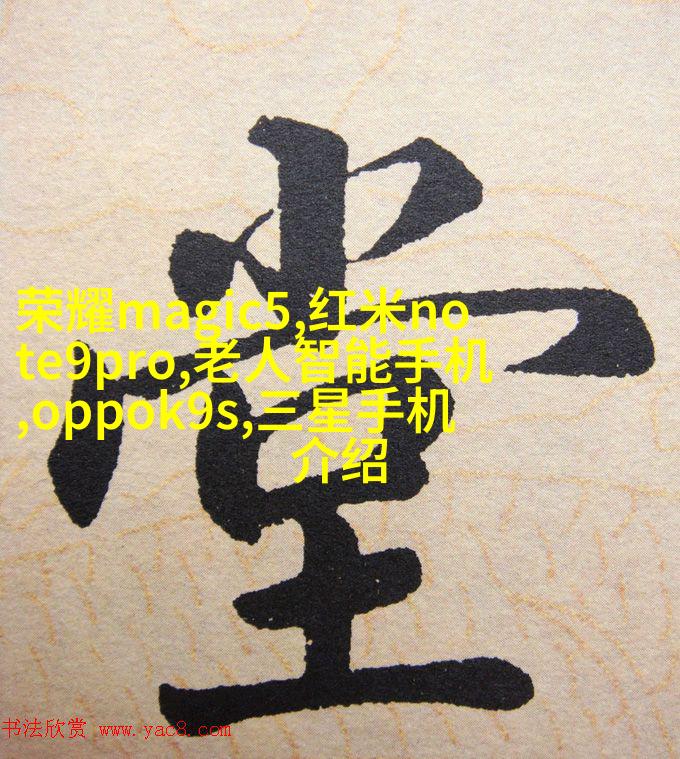 堂
荣耀magic5,红米no
te9pro,老人智能手机
,oppok9s,三星手机
介绍
书法欣赏 www.yac8.com